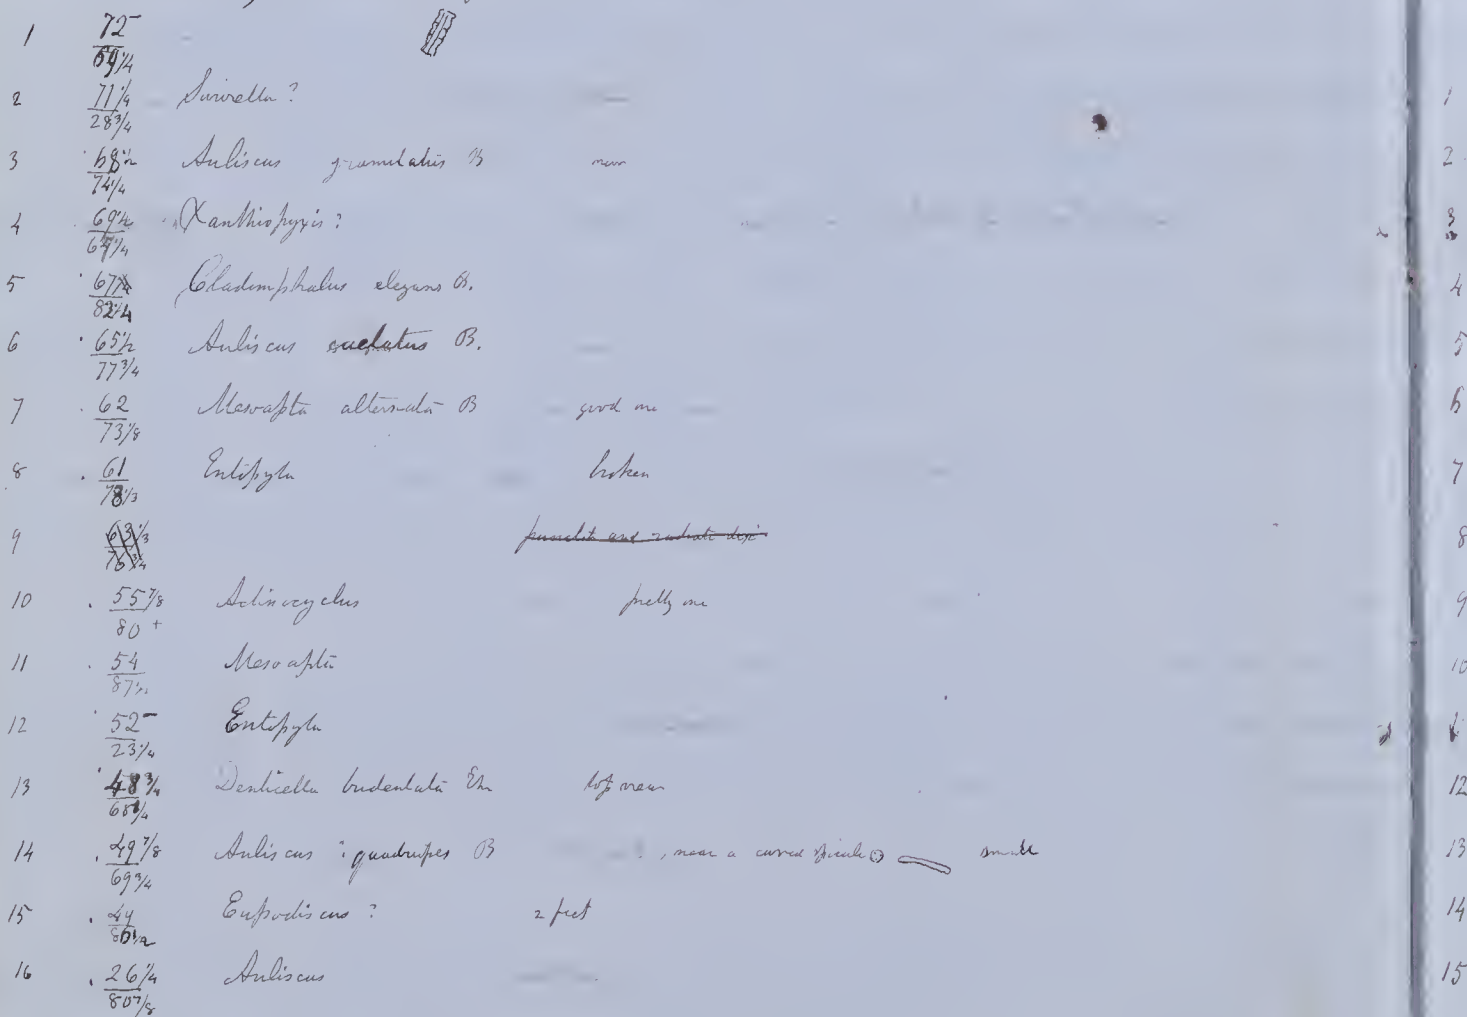 1 72-/69 1/4
2 71 1/4/28 3/4 Surirella ?
3 68 1/2/74 1/4 Auliscus granulatus B
4 69 1/2/ Xanthiopyxis ?
5 /82 1/4 Cladomphalus elegans B.
6 65 1/2/77 3/4 Auliscus caelatus B.
7 62/73 1/8 Mesoapta alternata B good one
8 61/78 1/3 Entopyla broken
9 63 1/3/76 3/4 and radiate disc
10 55 7/8/80 + Actinocyclus pretty one
11 54/87 1/2 Mesoapta
12 52-/23 1/4 Entopyla
13 48 3/4/ Denticella tridentata Eh. top view
14 49 7/8/69 3/4 Auliscus ? quadrupes B , near a curved spicule small
15 49/ Eupodiscus ? 2 feet
16 26 1/4/80 7/8 Auliscus
1
2
3
4
5
6
7
8
9
10
12
13
14
15